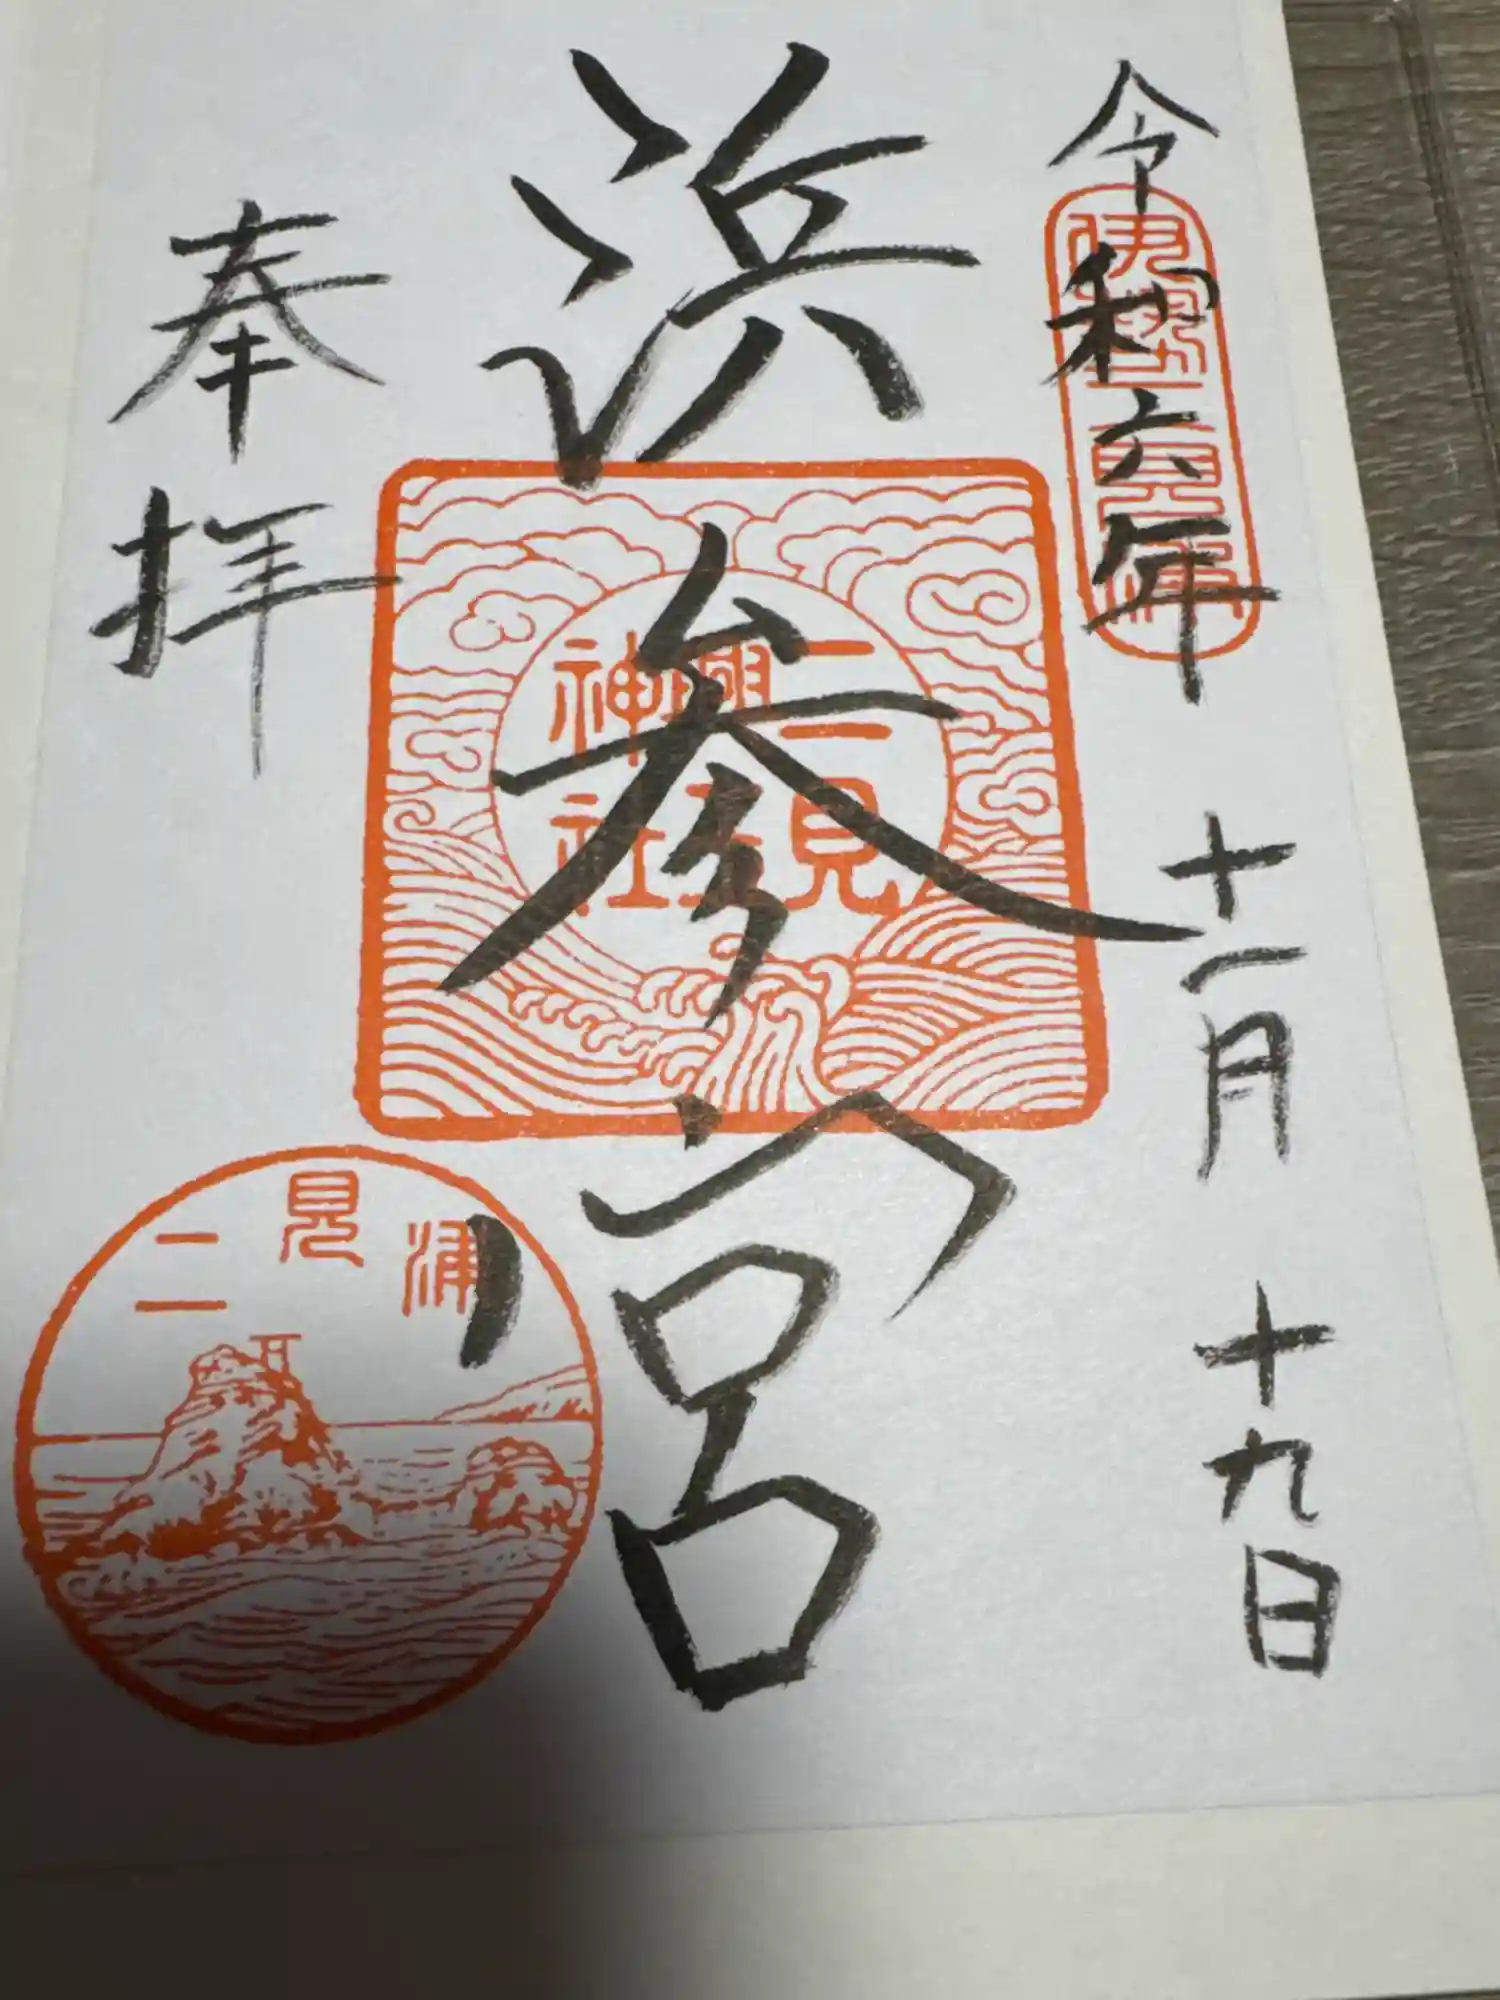 令和六年 十一月 十九日
伊勢 二見
浜参宮
二見興玉神社
奉拝
二見浦